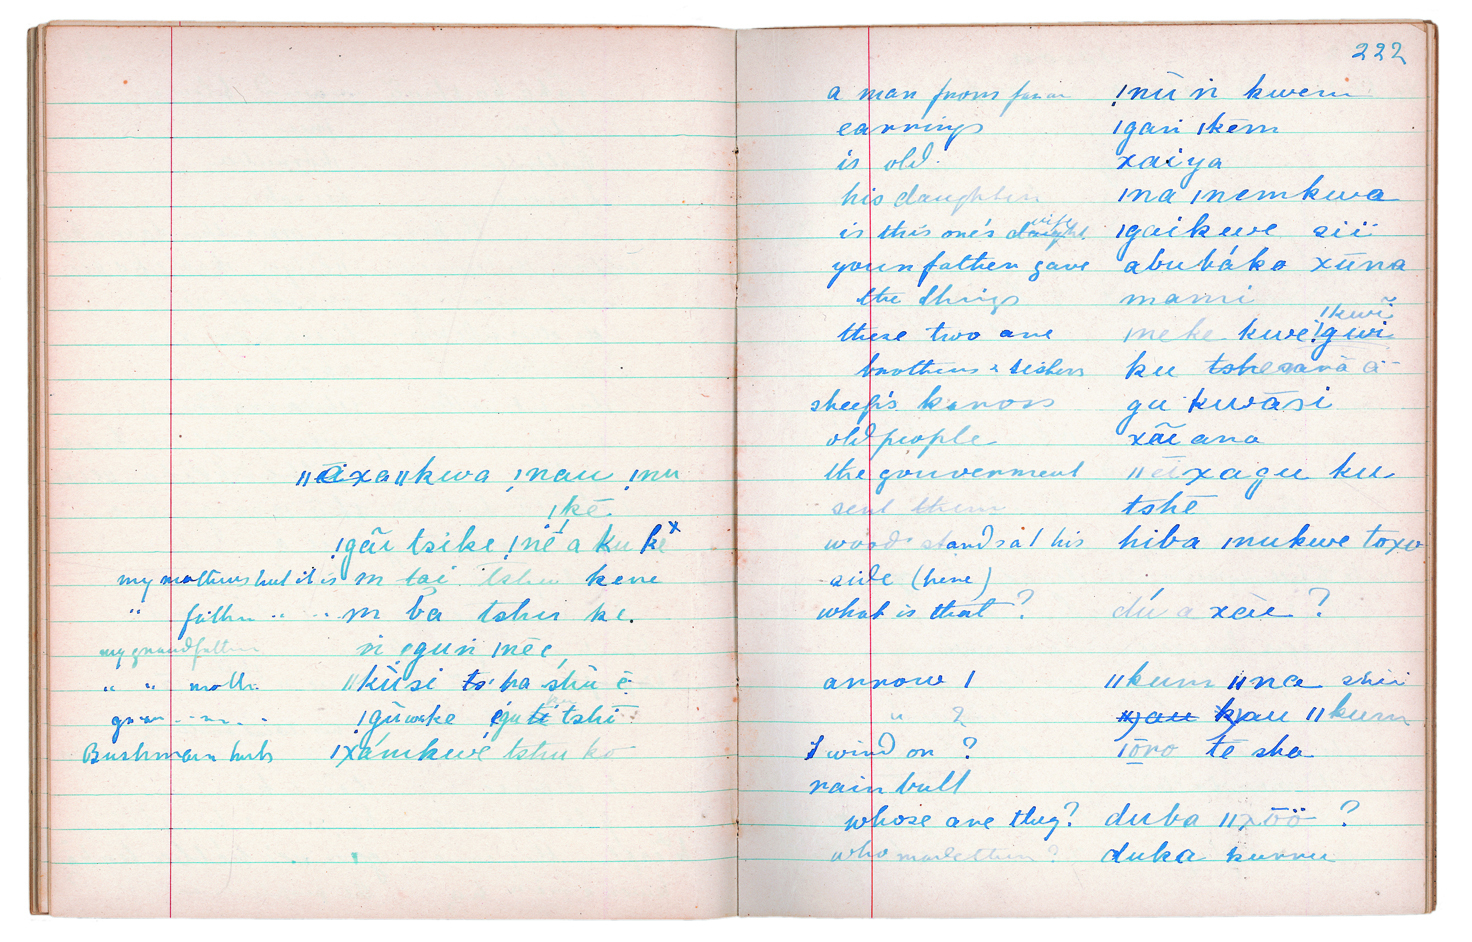 ǁãixaǁkwa !nau !nu
ǀkē
!gãi tsike !nē a ku ke x
my mothers hut it is m tai tshu kene
" father " " m ba tshu ke.
my grandfather
" " moth. ǁkūsi
tshī
Bushman huts ǀxámkwe tshu ko
222
a man from far !nū n kwem
earrings ǀgan ǀkēm
is old. xaiya
his daughter ǀna ǀnemkwa
is this one's daught wife ǀgaikwe sii
your father gave abubáko xūna
the things mami
ǀkwĩ
these two are ǀneke kwe !gwi
brothers & sisters ku
sheep's kaross gu kwāsi
old people xāi ana
the gouverment ǁēixagu ku
sent them tshē
woods stands at his hiba ǀnukwe toxo
side (here)
what is that? dú a xāe ?
arrow 1 ǁkum ǁna shii
" 2 kau ǁkum
I wind on ? ǀōro tē sha
rain bull
whose are they? duba ǁxōö ?
who made them? duka kurru